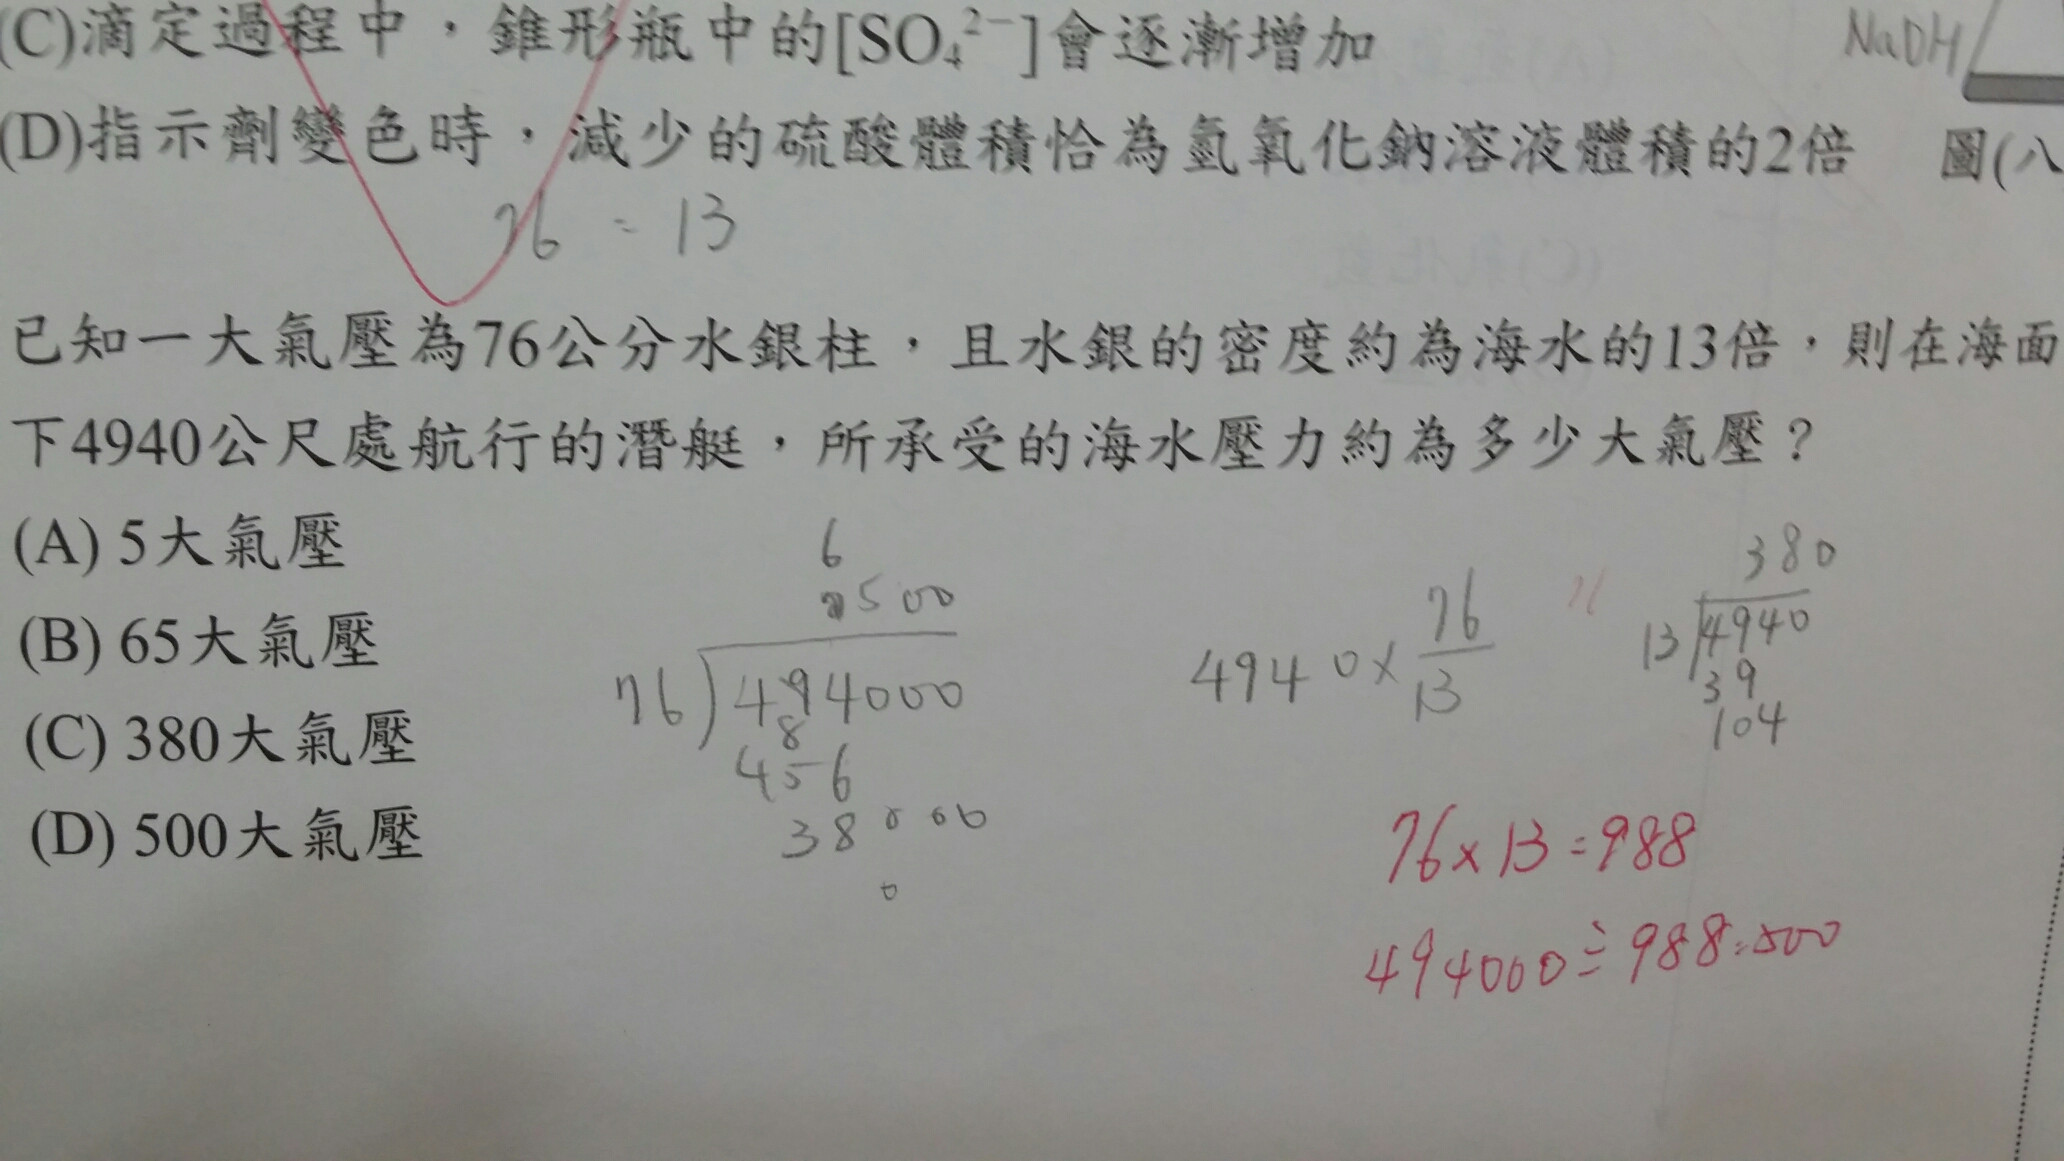 (C)滴定過程中，錐形瓶中的[SO₄²⁻]會逐漸增加
NaOH
(D)指示劑變色時，減少的硫酸體積恰為氫氧化鈉溶液體積的2倍 圖(八
76 = 13
已知一大氣壓為76公分水銀柱，且水銀的密度約為海水的13倍，則在海面
下4940公尺處航行的潛艇，所承受的海水壓力約為多少大氣壓？
(A) 5大氣壓
(B) 65大氣壓
(C) 380大氣壓
(D) 500大氣壓
6
500
76)494000
8
456
38000
0
4940×76/13
380
13)4940
39
104
76×13=988
494000÷988=500